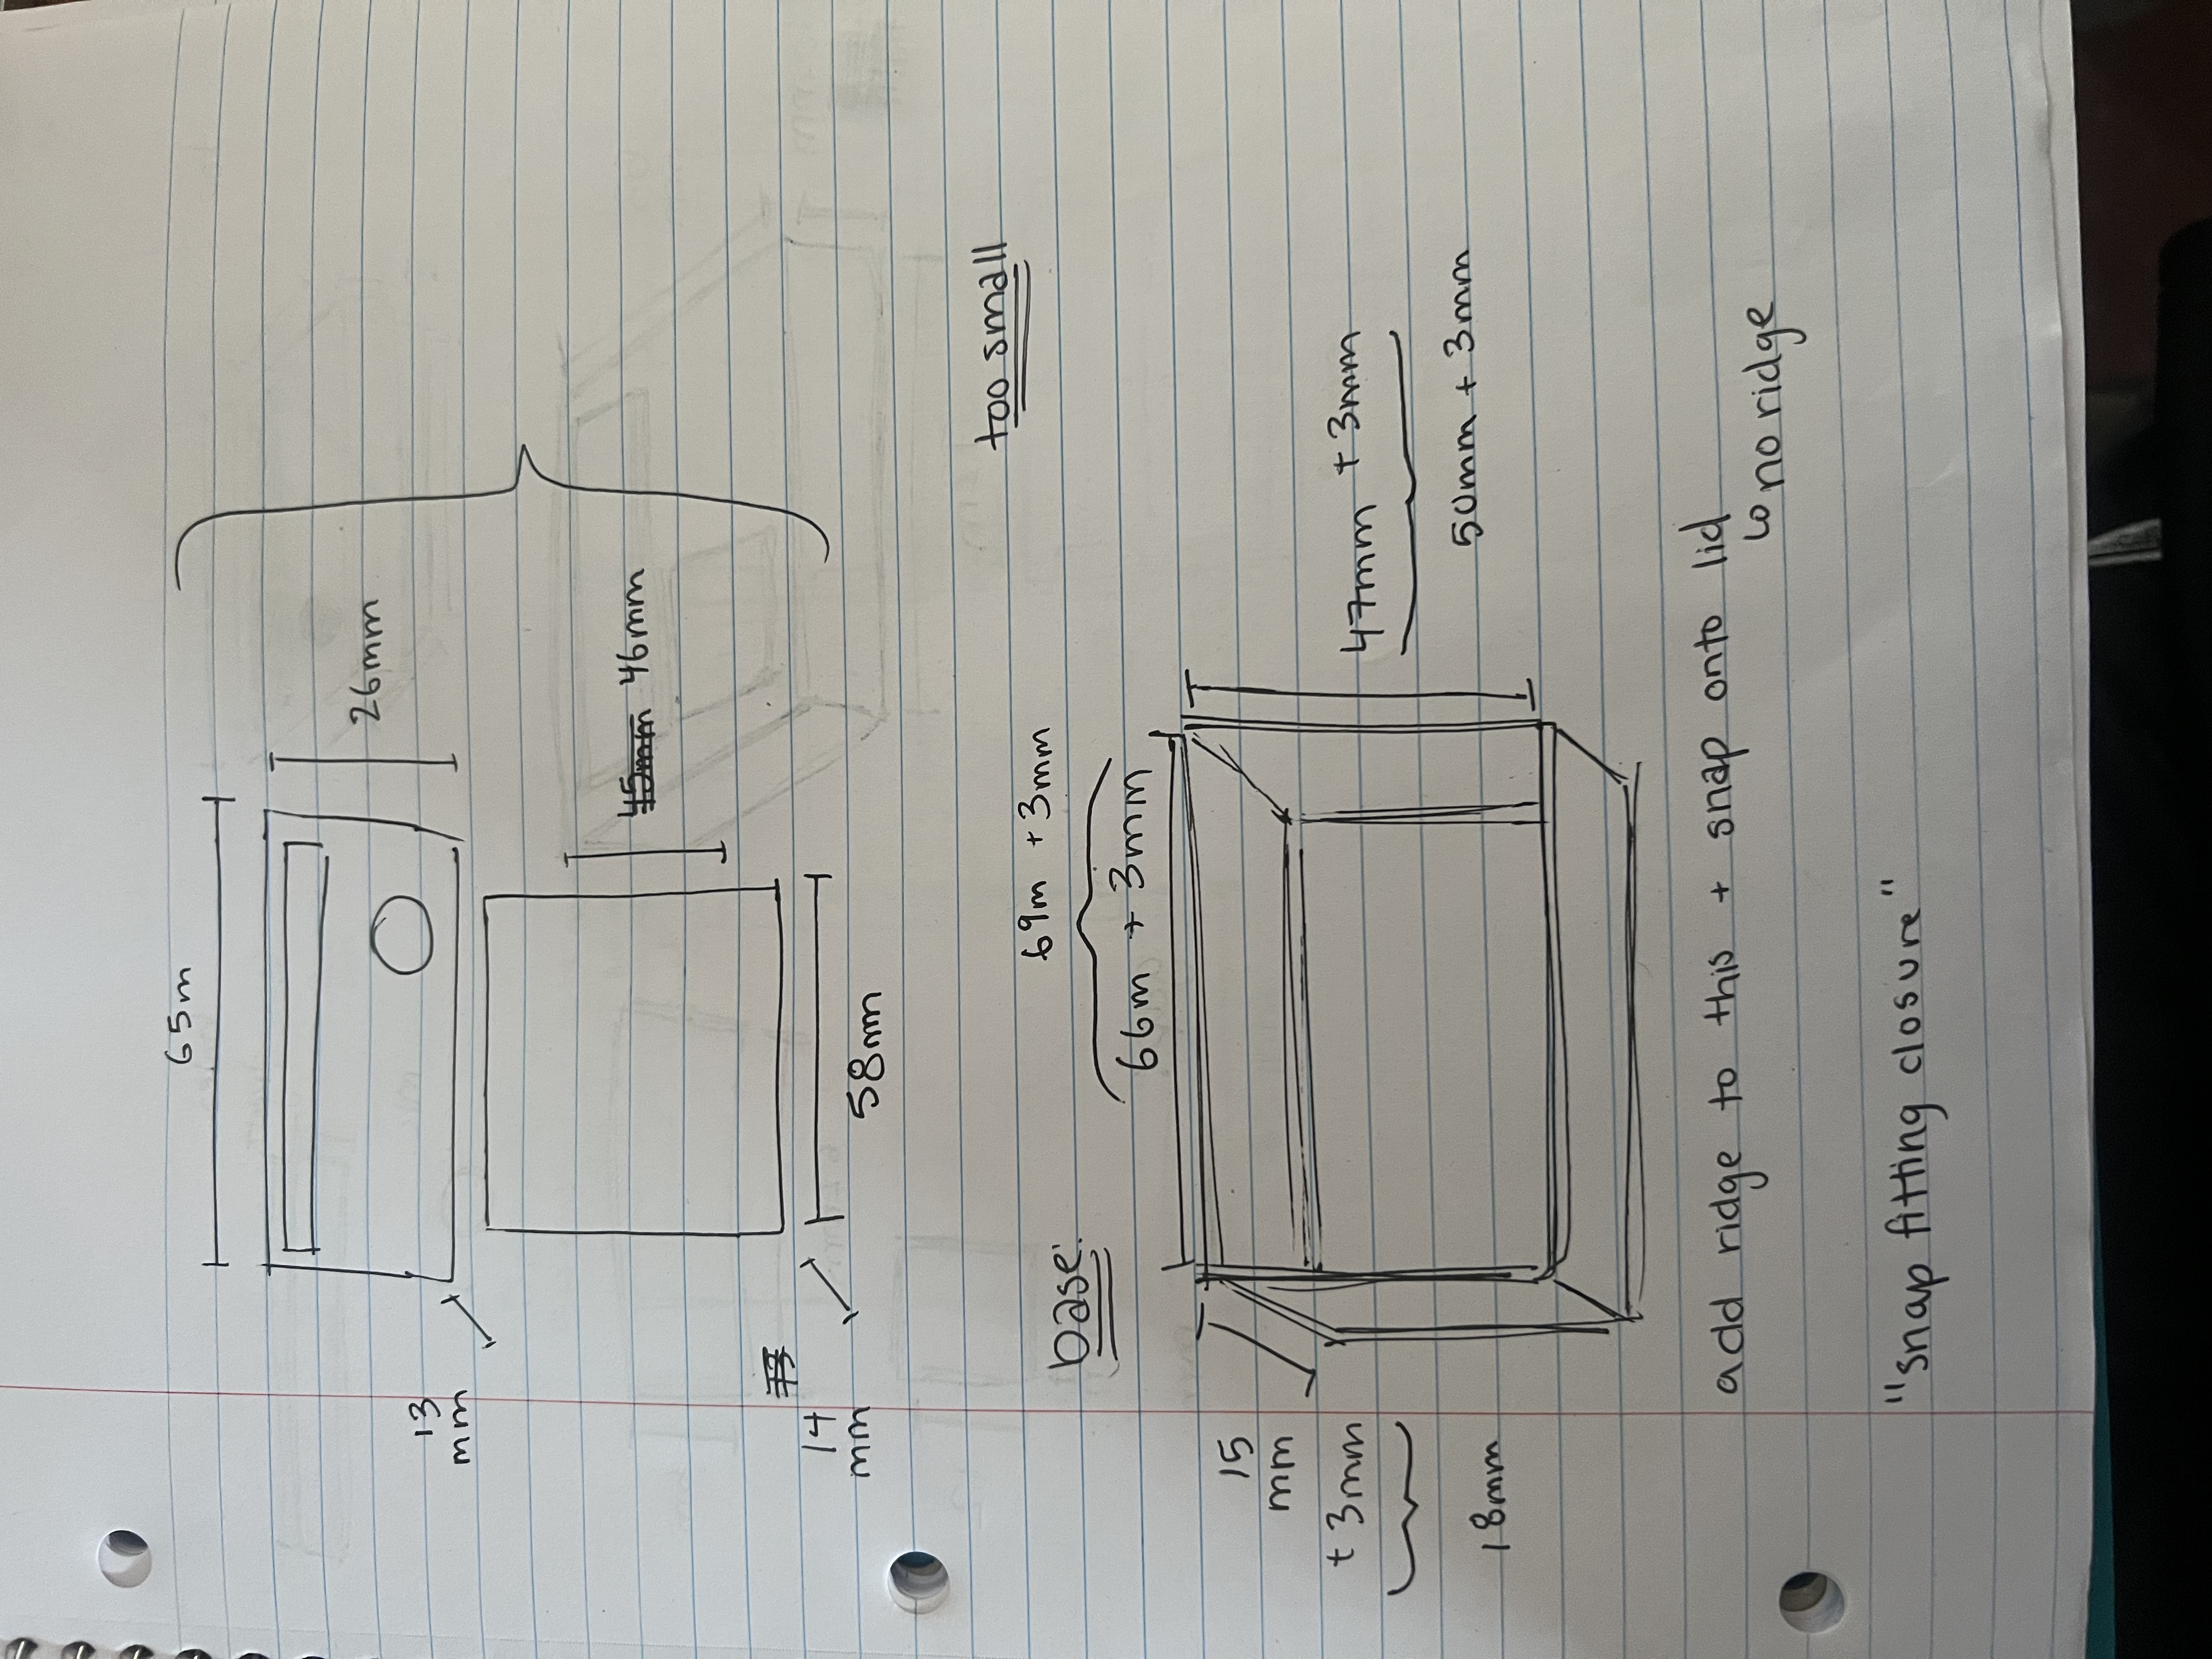 65m
26mm
13
mm
45mm 46mm
13
14
mm
58mm
too small
69m + 3mm
base:
66m + 3mm
15
mm
+ 3mm
47mm + 3mm
18mm
50mm + 3mm
add ridge to this + snap onto lid
↳ no ridge
"snap fitting closure"